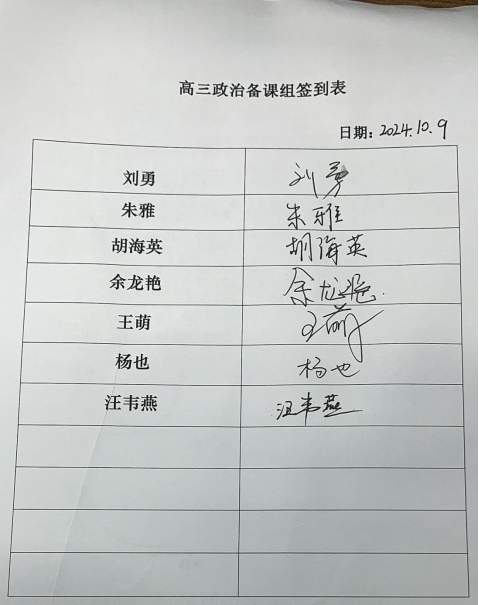 高三政治备课组签到表
日期：2024.10.9
刘勇 刘勇
朱雅 朱雅
胡海英 胡海英
余龙艳 余龙艳
王萌 王萌
杨也 杨也
汪韦燕 汪韦燕